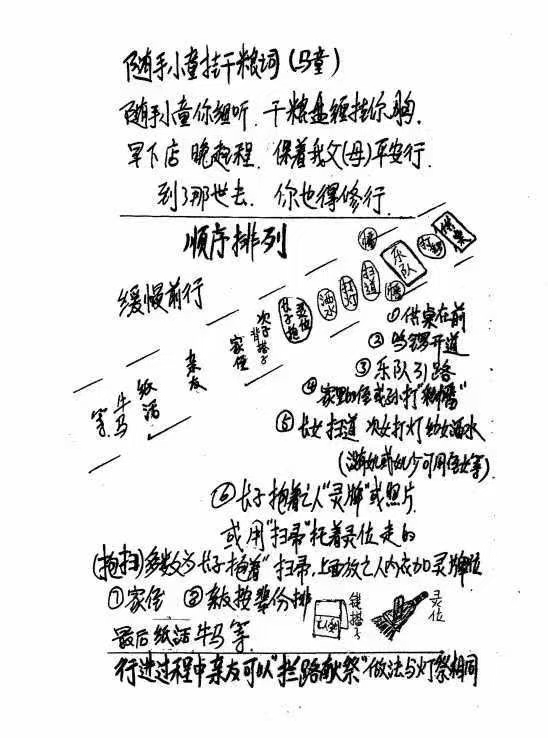 随手小童挂干粮词(马童)
随手小童你细听.干粮盘缠挂你胸.
早下店 晚起程.保着我父(母)平安行.
到了那世去.你也得修行.
顺序排列
供桌
打锣
乐队
幡
幡
扫道
打灯
洒水
长子抱灵位
次子背搭子
家侄
亲友
纸活
牛马等
缓慢前行
①供桌在前
②鸣锣开道
③乐队引路
④家里的侄或孙打"幡"
⑤长女扫道 次女打灯幼女洒水
(没有女或女少可用侄女等)
⑥长子抱着亡人"灵牌"或照片
或用"扫帚"托着灵位走的
(抱扫)多数为长子抱着"扫帚,上面放亡人内衣加灵牌位
⑦家侄 ⑧亲友按辈份排
钱搭子
灵位
最后纸活牛马等
行进过程中亲友可以"拦路献祭"做法与灯祭相同